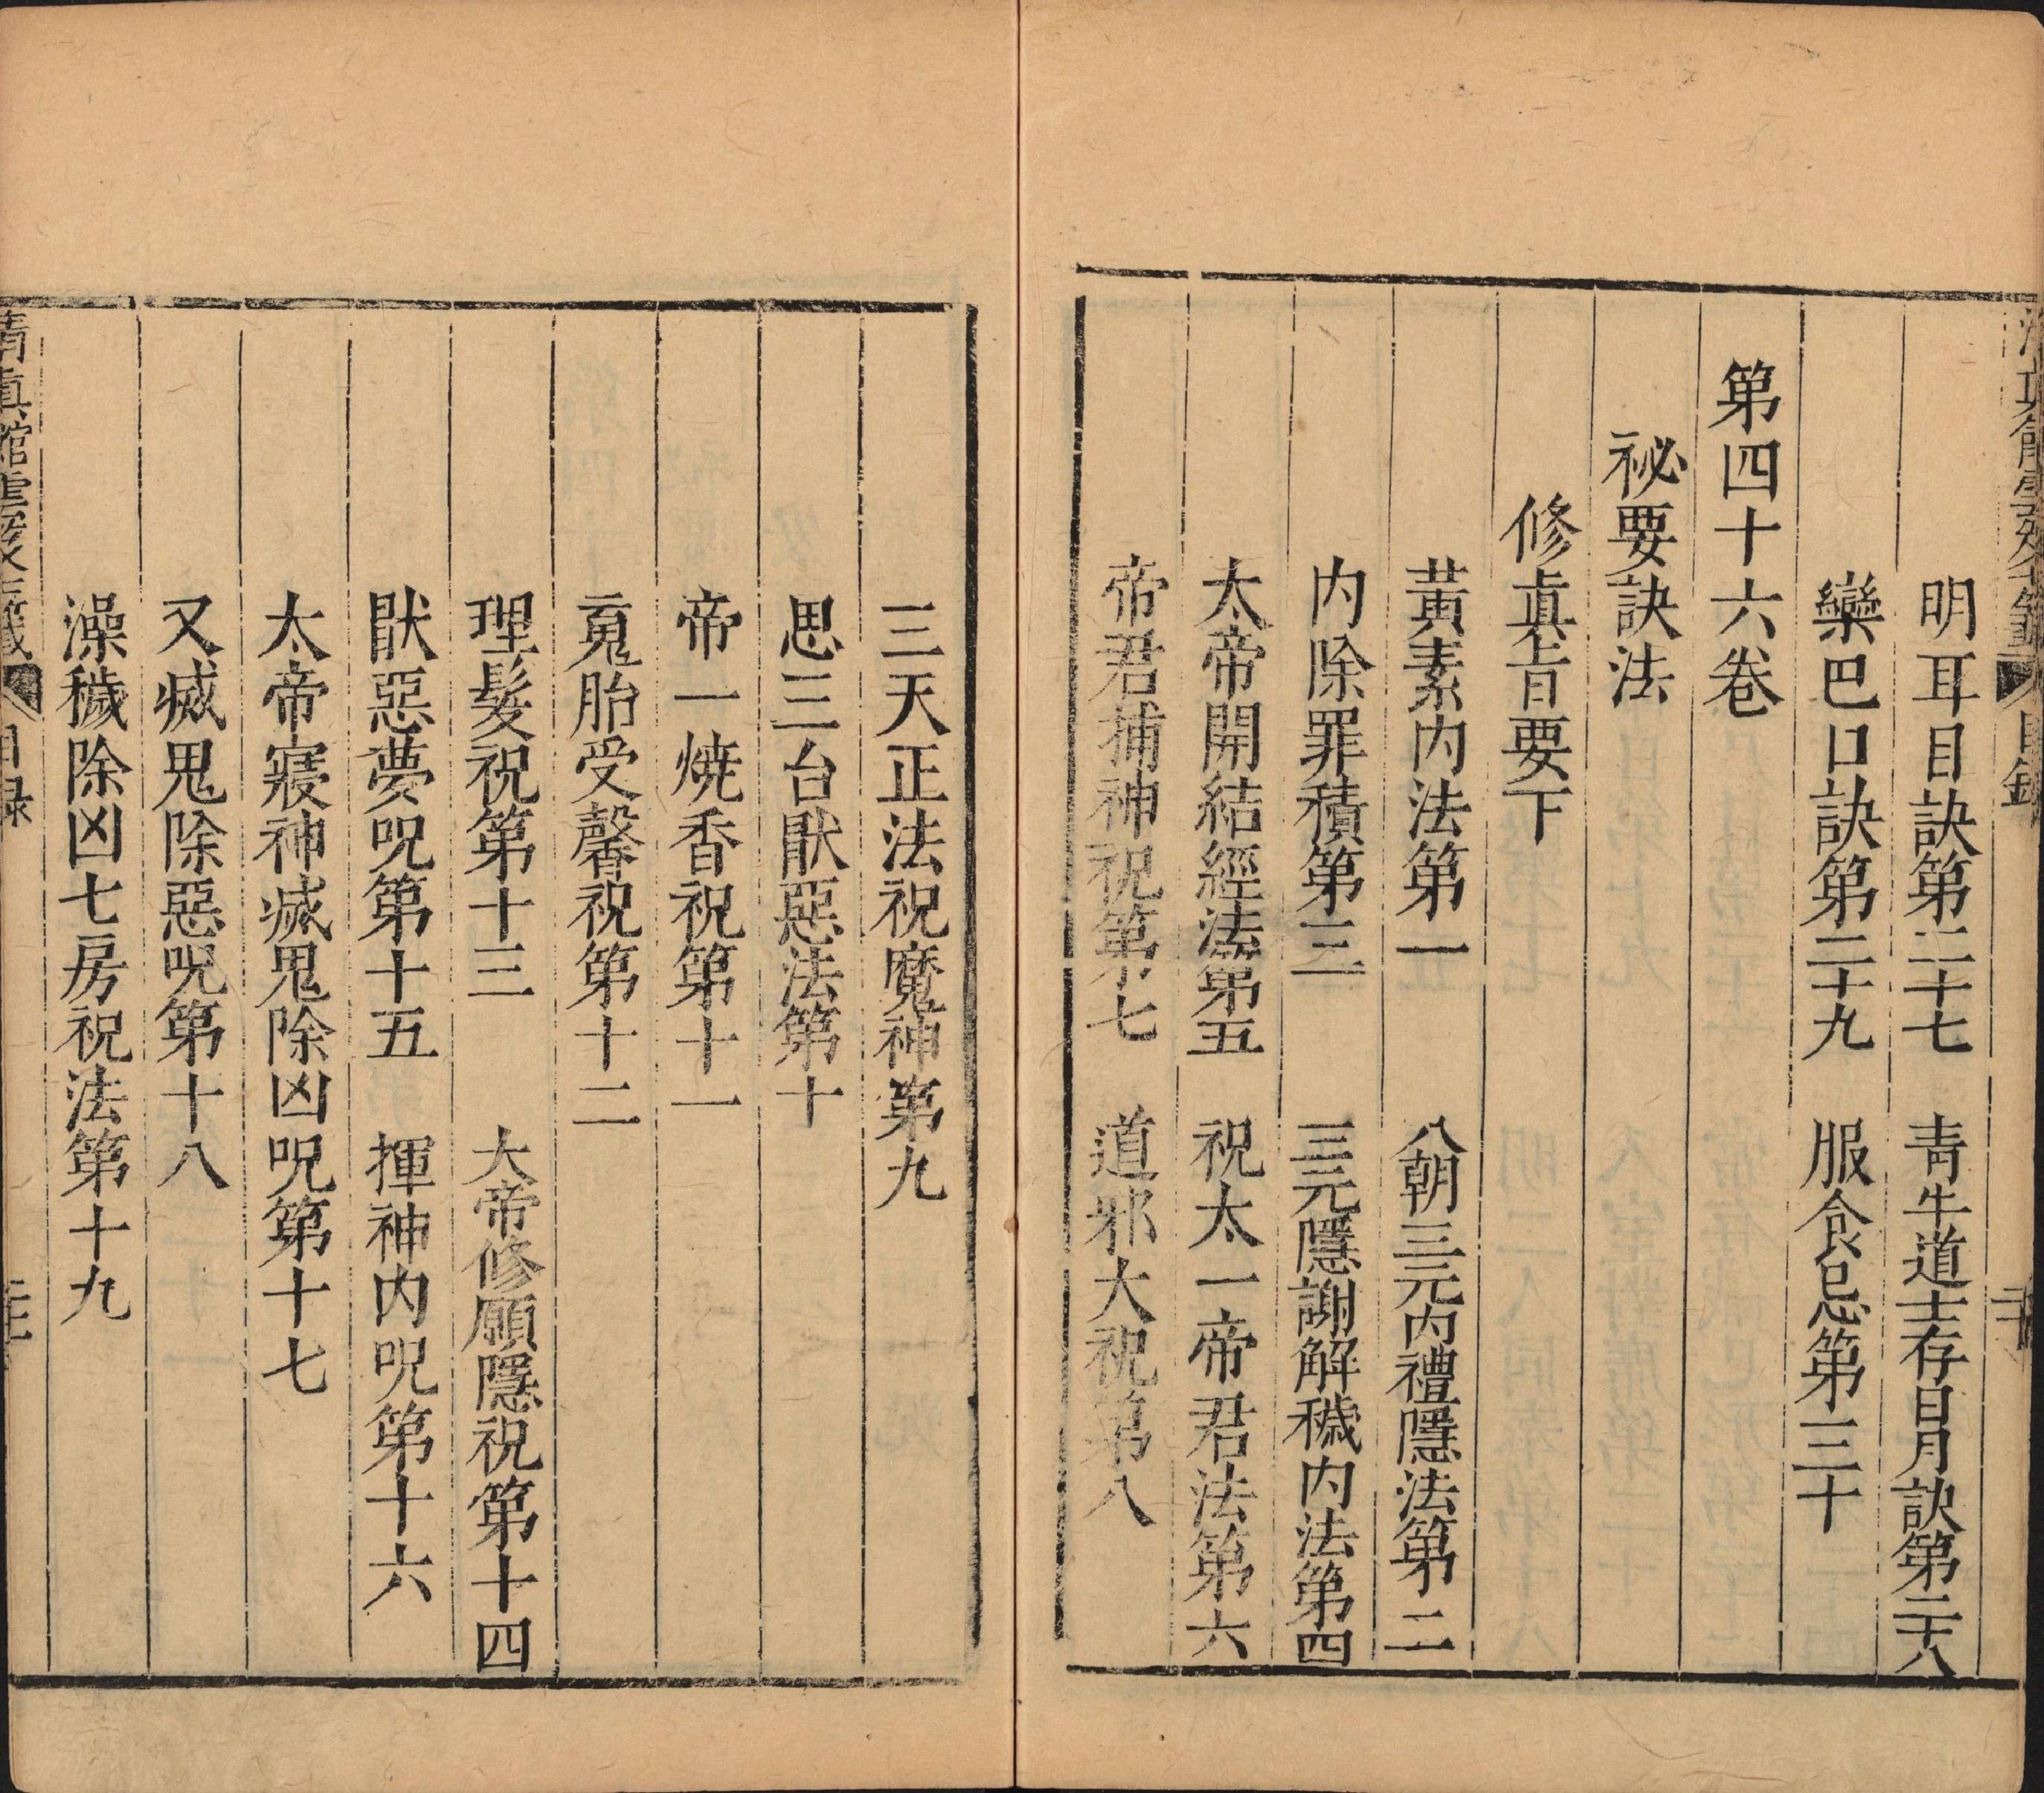 明耳目訣第二十七　青牛道士存日月訣第二十八
欒巴口訣第二十九　服食忌第三十
第四十六卷
祕要訣法
修真旨要下
黃素内法第一　八朝三元内禮隱法第二
内除罪積第三　三元隱謝解穢内法第四
太帝開結經法第五　祝太一帝君法第六
帝君捕神祝第七　道邪大祝第八
三天正法祝魔神第九
思三台猒惡法第十
帝一燒香祝第十一
胎受馨祝第十二
理髮祝第十三　大帝修願隱祝第十四
猒惡夢呪第十五　揮神内呪第十六
太帝寢神滅鬼除凶呪第十七
又滅鬼除惡呪第十八
澡穢除凶七房祝法第十九
清真館雲笈七籤　目録